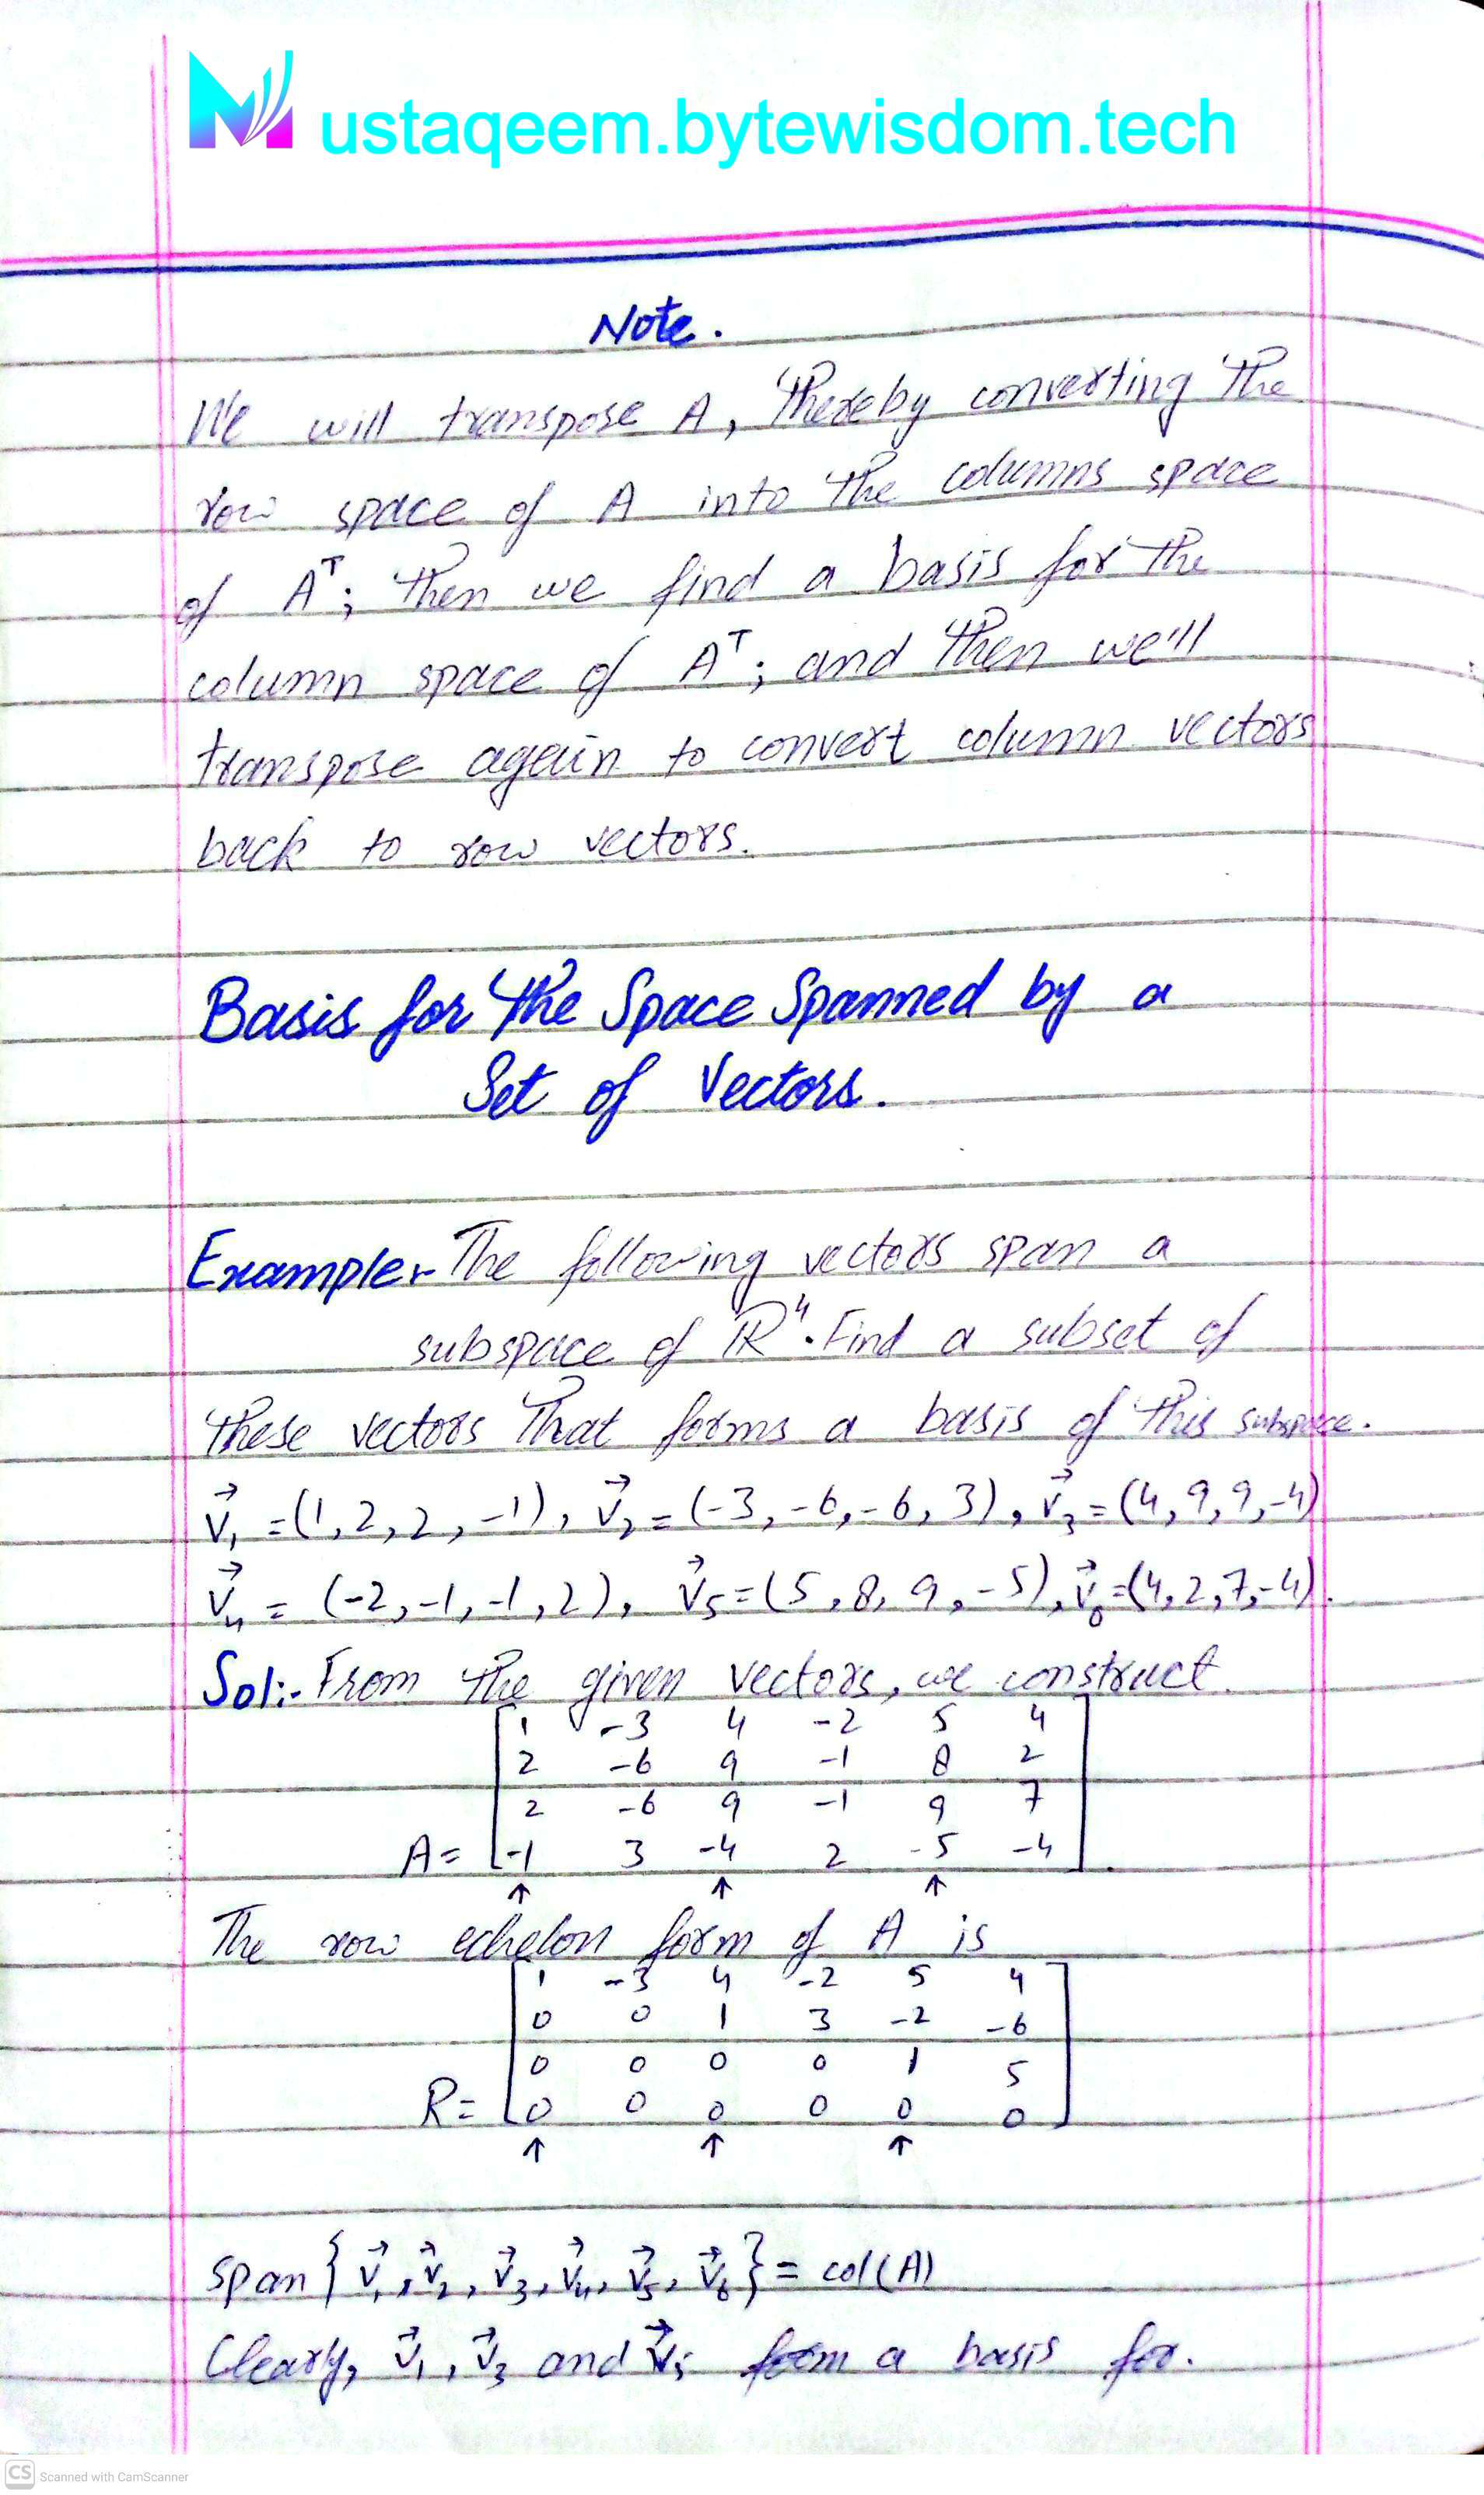 Mustaqeem.bytewisdom.tech
Note.
We will transpose A, thereby converting the
row space of A into the columns space
of Aᵀ; then we find a basis for the
column space of Aᵀ; and then we'll
transpose again to convert column vectors
back to row vectors.
Basis for the Space Spanned by a
Set of Vectors.
Example:- The following vectors span a
subspace of ℝ⁴. Find a subset of
these vectors that forms a basis of this subspace.
v⃗₁ = (1, 2, 2, -1), v⃗₂ = (-3, -6, -6, 3), v⃗₃ = (4, 9, 9, -4)
v⃗₄ = (-2, -1, -1, 2), v⃗₅ = (5, 8, 9, -5), v⃗₆ = (4, 2, 7, -4).
Sol:- From the given vectors, we construct.
1 -3 4 -2 5 4
2 -6 9 -1 8 2
2 -6 9 -1 9 7
A = -1 3 -4 2 -5 -4
↑ ↑ ↑
The row echelon form of A is
1 -3 4 -2 5 4
0 0 1 3 -2 -6
0 0 0 0 1 5
R = 0 0 0 0 0 0
↑ ↑ ↑
span { v⃗₁, v⃗₂, v⃗₃, v⃗₄, v⃗₅, v⃗₆ } = col(A)
Clearly, v⃗₁, v⃗₃ and v⃗₅ form a basis for.
CS Scanned with CamScanner